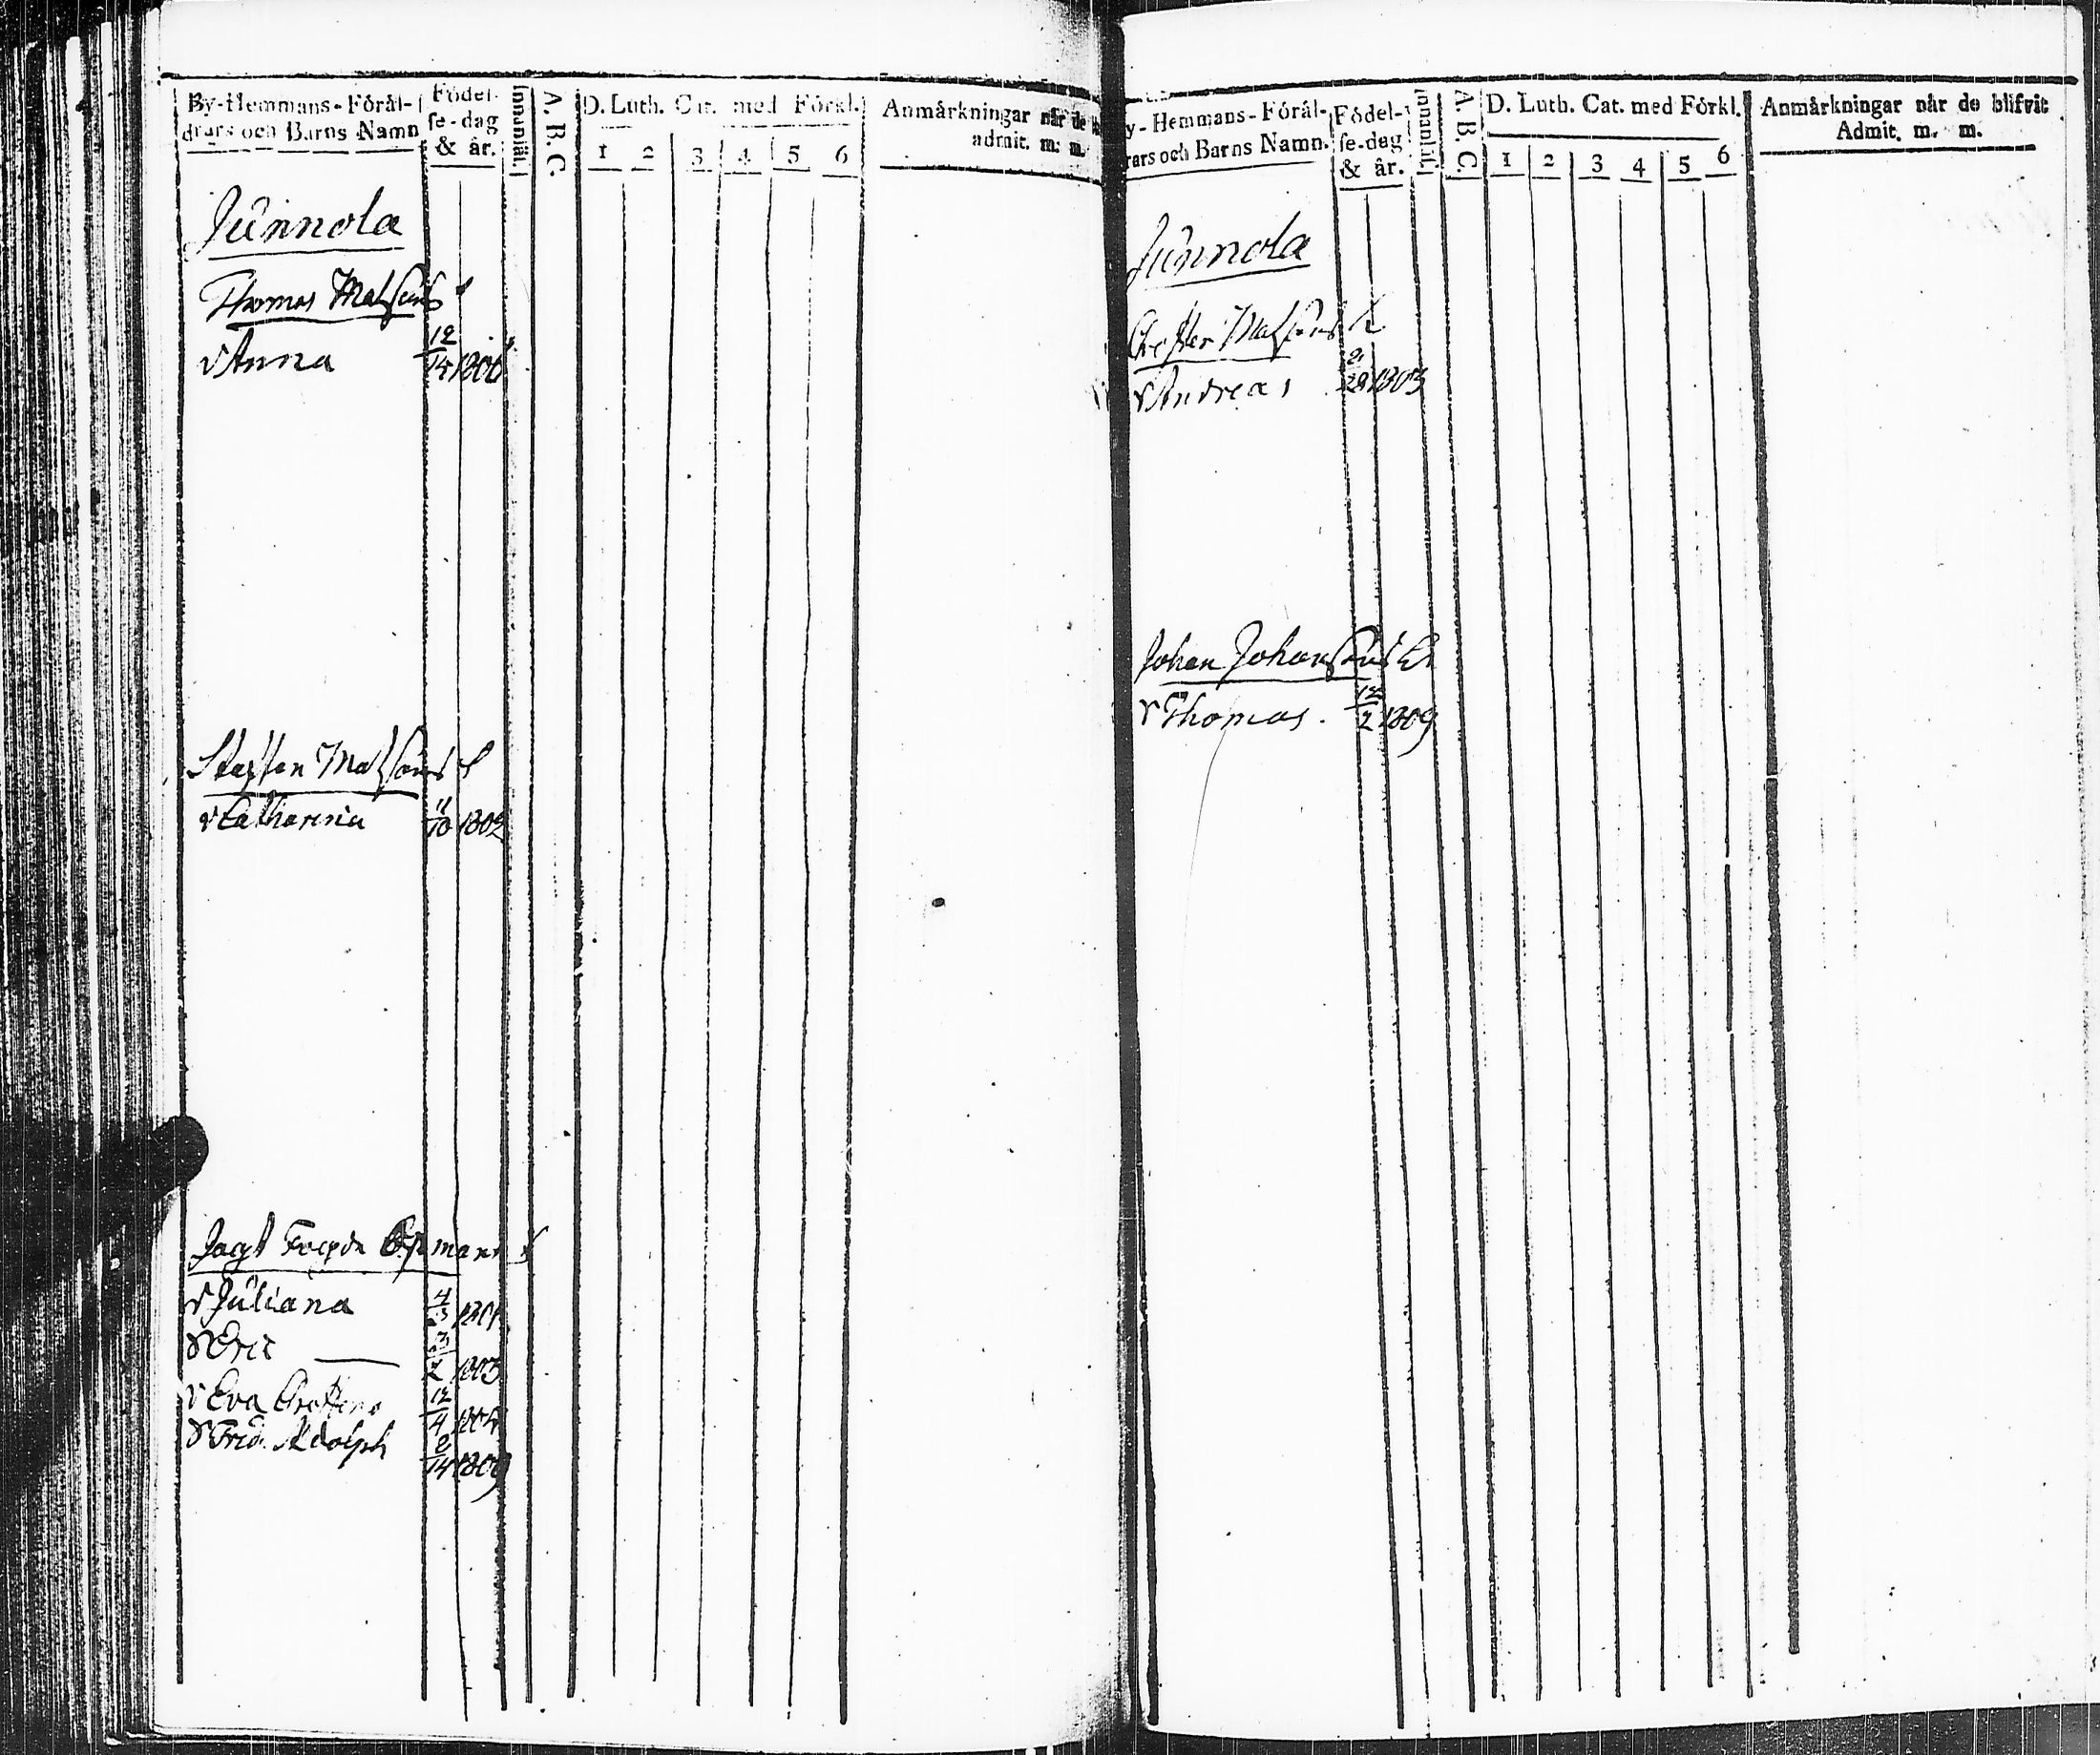 By-Hemmans-Förål-
drars och Barns Namn
Födel-
se-dag
& år.
Innanläs.
A. B. C.
D. Luth. Cat. med Förkl.
1 2 3 4 5 6
Anmårkningar når de
admit. m. m.
Junnola
Thomas Matssons
Anna 12/14 1806
Staffan Matssons
Catharina 11/10 1802
Jagt Fougden
Juliana 4/3 1801
Eric
Eva 12/4
Fred. Adolph 2/14 1809
y-Hemmans-Förål-
rars och Barns Namn.
Födel-
se-dag
& år.
A. B. C.
D. Luth. Cat. med Förkl.
1 2 3 4 5 6
Anmårkningar når de blifvit
Admit. m. m.
Junnola
Matssons
Andreas 1803
Johan Johanssons
Thomas. 12/2 1809